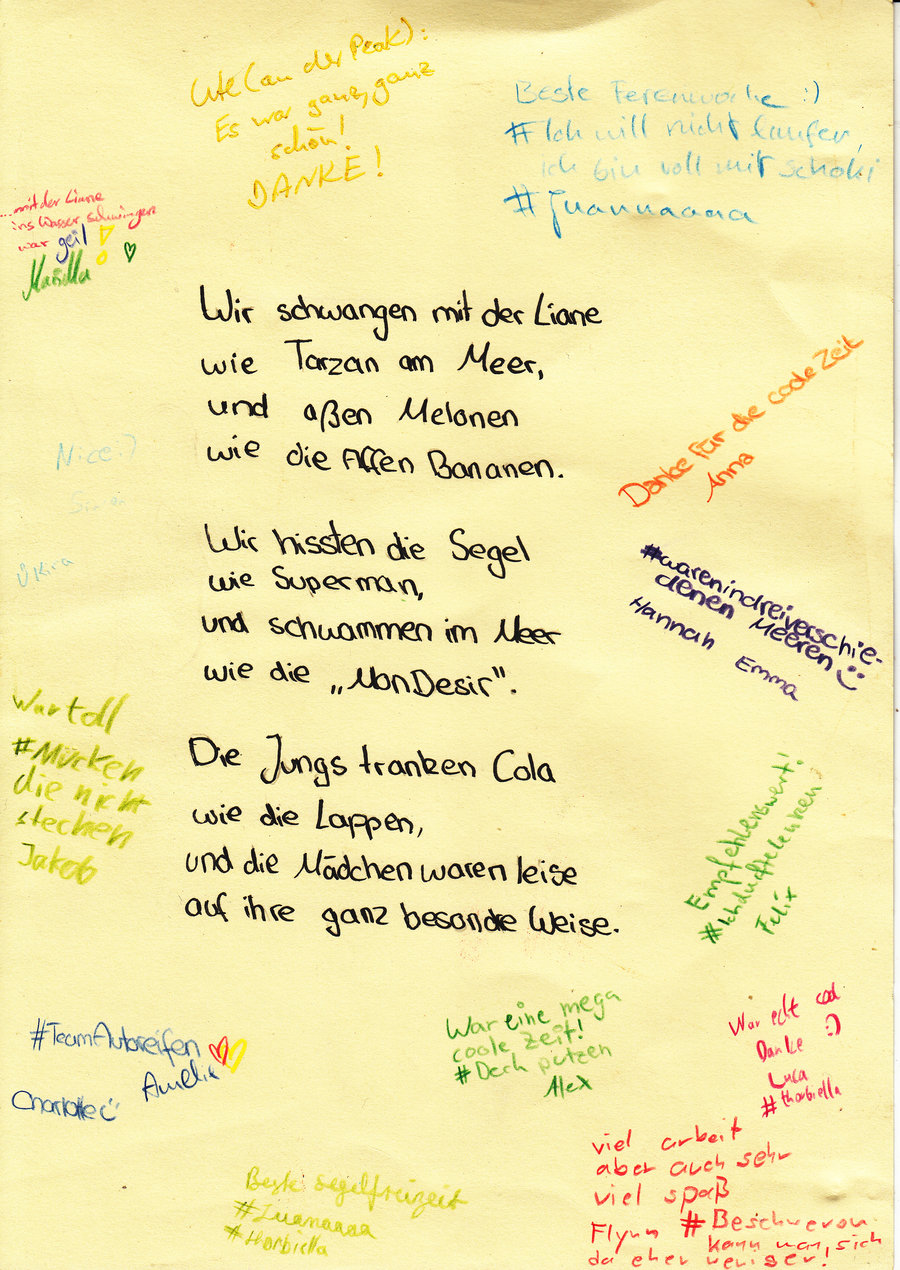 Ute (an der Peak):
Es war ganz, ganz
schön!
DANKE!
Beste Ferienwoche :)
#Ich will nicht laufen,
ich bin voll mit schoki
#Juannaaaa
...mit der Liane
ins Wasser schwingen
war geil!
Wir schwangen mit der Liane
wie Tarzan am Meer,
und aßen Melonen
wie die Affen Bananen.
Danke für die coole Zeit
Anna
Nice :)
Kira
Wir hissten die Segel
wie Superman,
und schwammen im Meer
wie die „MonDesir".
#warenindreiverschie-
denen Meeren
Hannah Emma
War toll
#Mücken
die nicht
stechen
Jakob
Die Jungs tranken Cola
wie die Lappen,
und die Mädchen waren leise
auf ihre ganz besondre Weise.
Empfehlenswert!
#Ichduftelenken
Felix
#TeamAutoreifen
Amelie
Charlotte
War eine mega
coole Zeit!
#Deck putzen
Alex
War echt cool
Danke :)
Luca
#thorbiella
Beste segelfreizeit
#Juanaaaa
#thorbiella
viel arbeit
aber auch sehr
viel spaß
Flynn #Beschweren
kann man sich
da eher weniger!